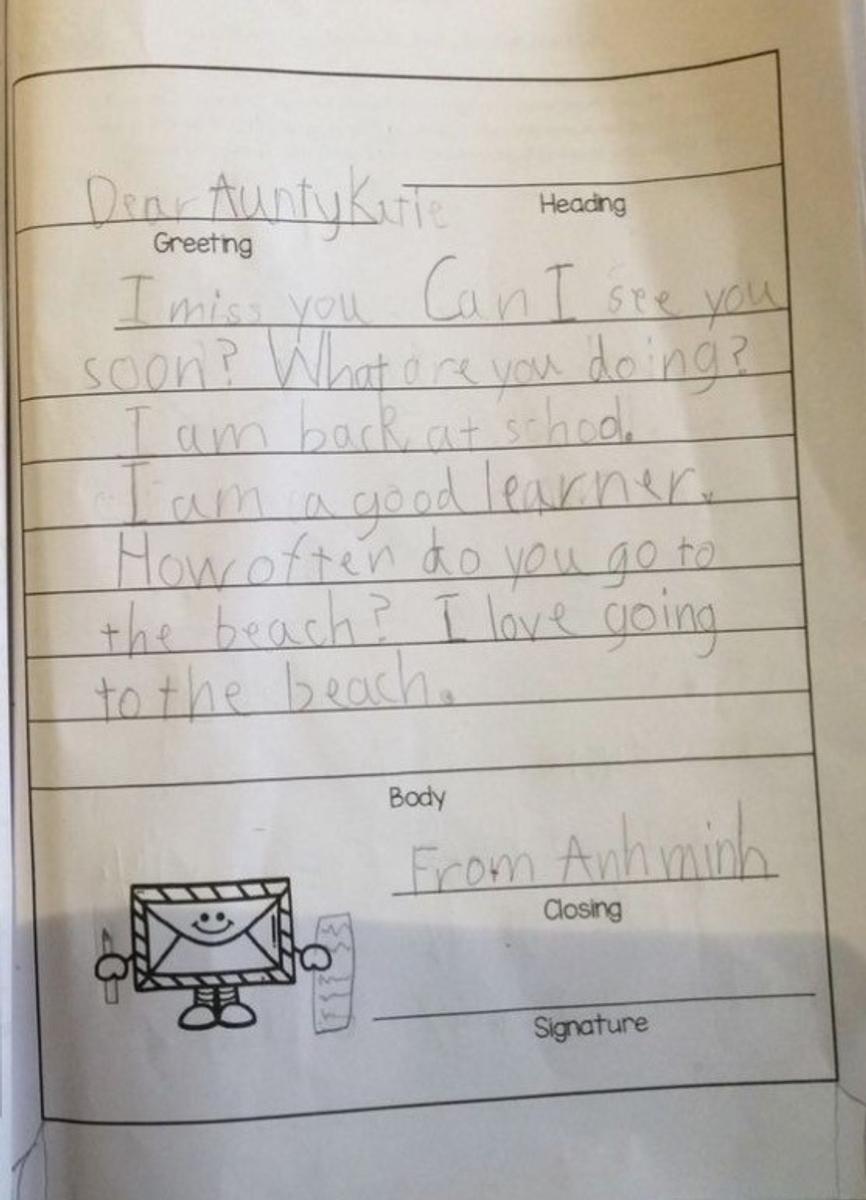 Dear Aunty Katie
Heading
Greeting
I miss you Can I see you
soon? What are you doing?
I am back at school.
I am a good learner.
How often do you go to
the beach? I love going
to the beach.
Body
From Anh minh
Closing
Signature